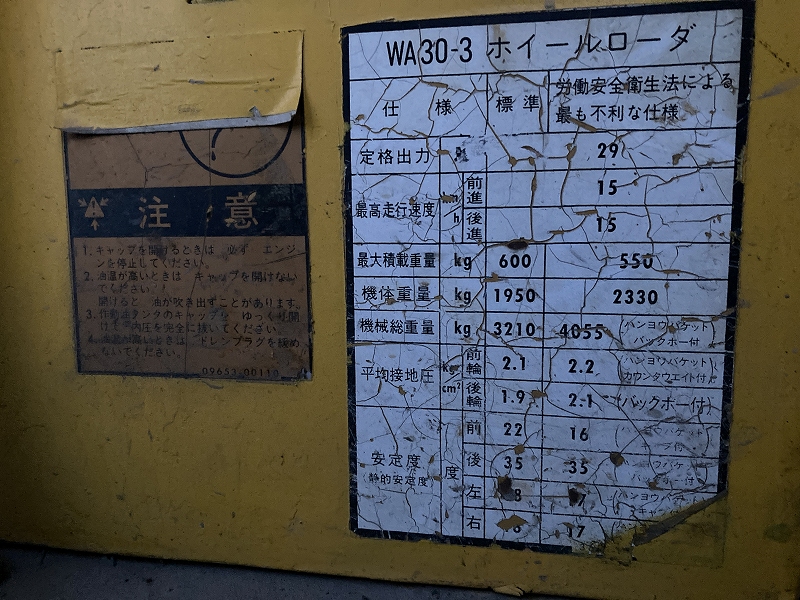 注 意
1. キャップを開けるときは 必ず エンジ
ンを停止してください。
2. 油温が高いときは キャップを開けない
でください。
開けると 油が吹き出すことがあります。
3. 作動油タンクのキャップを ゆっくり開
け 内圧を完全に抜いてください。
4. 油温が高いときは ドレンプラグを緩め
ないでください。
09653-00110
WA30-3 ホイールローダ
仕 様 標 準 労働安全衛生法による
最も不利な仕様
定格出力 29
最高走行速度 km h 前進 15
後進 15
最大積載重量 kg 600 550
機体重量 kg 1950 2330
機械総重量 kg 3210 4055 (ハンヨウバケット
バックホー付)
平均接地圧 kg cm² 前輪 2.1 2.2 (ハンヨウバケット
カウンタウエイト付)
後輪 1.9 2.1 (バックホー付)
安定度 (静的安定度) 度 前 22 16
後 35 35
バックホー付)
左 ハンヨウバケット
右 17